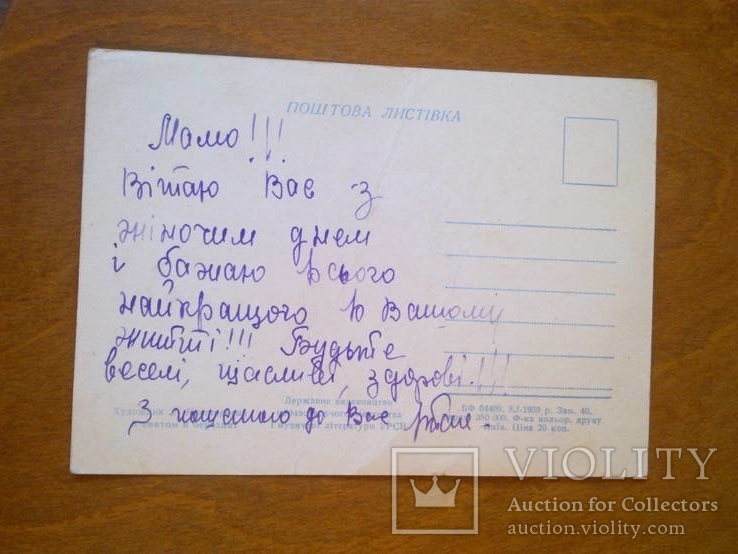 ПОШТОВА ЛИСТІВКА
Мамо!!!
Вітаю Вас з
жіночим днем
і бажаю всього
найкращого в Вашому
житті!!! Будьте
веселі, щасливі, здорові!!!
З пошаною до Вас
Державне видавництво
Художник
святом 8 березня!
і музичної літератури УРСР
БФ 04400. 8.I.1959 р. Зам. 40.
350 000. Ф-ка кольор. друку
Київ. Ціна 20 коп.
VIOLITY
Auction for Collectors
auction.violity.com